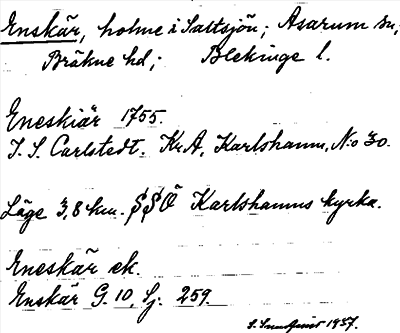 Enskär, holme i Saltsjön; Asarum sn;
Bräkne hd; Blekinge l.
Eneskiär 1755.
J. S. Carlstedt. Kr.A, Karlshamn, No 30.
Läge 3,8 km. SSÖ Karlshamns kyrka.
Eneskär ek.
Enskär G. 10, Sj. 259
1937.